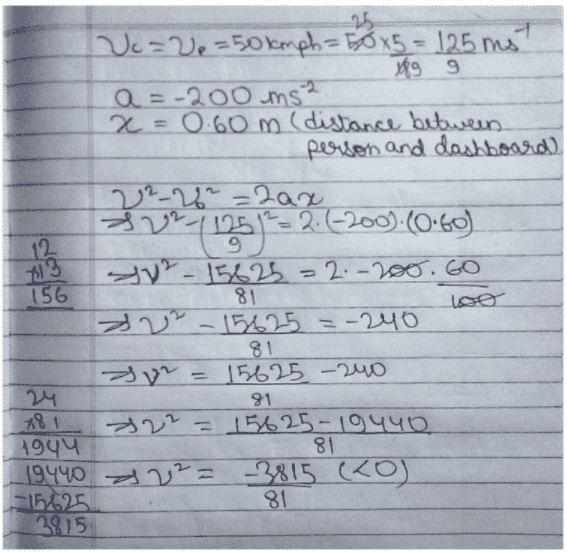 25
Vc = Vp = 50 kmph = 50 × 5 / 18 9 = 125 / 9 ms⁻¹
a = -200 ms⁻²
x = 0.60 m (distance between
person and dashboard)
v² - v₀² = 2ax
⇒ v² - (125/9)² = 2.(-200).(0.60)
12
×13
156
⇒ v² - 15625/81 = 2. -200. 60/100
⇒ v² - 15625/81 = -240
⇒ v² = 15625/81 - 240
24
×81
1944
⇒ v² = 15625 - 19440 / 81
19440
-15625
3815
⇒ v² = -3815/81 (<0)